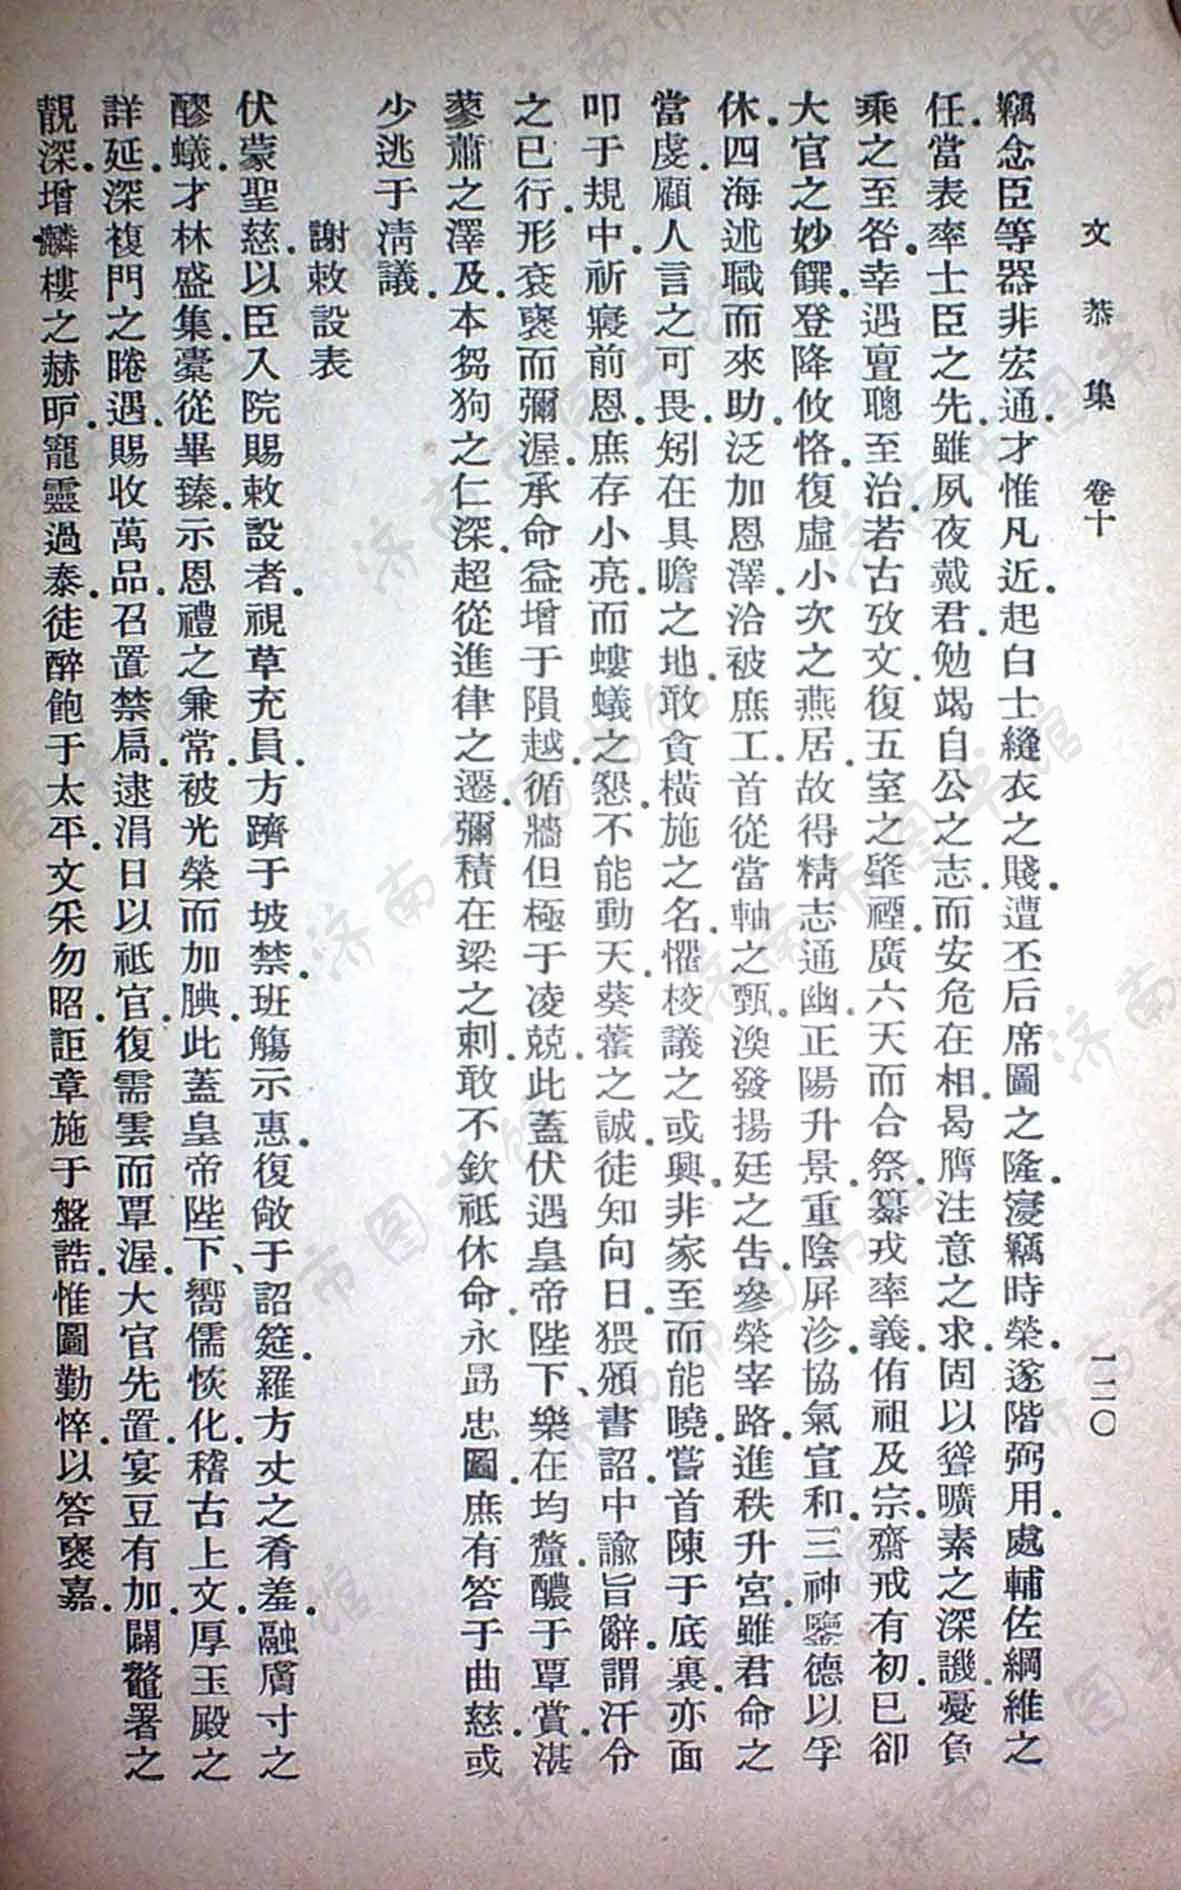 文恭集 卷十 一二〇
竊念臣等器非宏通.才惟凡近.起白士縫衣之賤.遭丕后席圖之隆.寖竊時榮.遂階弼用.處輔佐綱維之
任.當表率士臣之先.雖夙夜戴君.勉竭自公之志.而安危在相.曷膺注意之求.固以聳曠素之深譏.憂負
乘之至咎.幸遇亶聰至治.若古攷文.復五室之肇禋.廣六天而合祭.纂戎率義.侑祖及宗.齋戒有初.已卻
大官之妙饌.登降攸恪.復虛小次之燕居.故得精志通幽.正陽升景.重陰屏沴.協氣宣和.三神鑒德以孚
休.四海述職而來助.泛加恩澤.洽被庶工.首從當軸之甄.渙發揚廷之告.參榮宰路.進秩升宮.雖君命之
當虔.顧人言之可畏.矧在具瞻之地.敢貪橫施之名.懼校議之或興.非家至而能曉.嘗首陳于底裏.亦面
叩于規中.祈寢前恩.庶存小亮.而螻蟻之懇.不能動天.葵藿之誠.徒知向日.猥頒書詔.中諭旨辭.謂汗令
之已行.形袞褒而彌渥.承命益增于隕越.循牆但極于凌兢.此蓋伏遇皇帝陛下、樂在均釐.醲于覃賞.湛
蓼蕭之澤.及本芻狗之仁深.超從進律之遷.彌積在梁之刺.敢不欽祗休命.永勗忠圖.庶有答于曲慈.或
少逃于淸議.
謝敕設表
伏蒙聖慈.以臣入院賜敕設者.視草充員.方躋于坡禁.班觴示惠.復敞于詔筵.羅方丈之肴羞.融膚寸之
醪蟻.才林盛集.橐從畢臻.示恩禮之兼常.被光榮而加腆.此蓋皇帝陛下、嚮儒恢化.稽古上文.厚玉殿之
詳延.深複門之睠遇.賜收萬品.召置禁扃.逮涓日以祗官.復需雲而覃渥.大官先置.宴豆有加.闢鼇署之
靚深.增麟樓之赫戶.寵靈過泰.徒醉飽于太平.文采勿昭.詎章施于盤誥.惟圖勤悴.以答褒嘉.